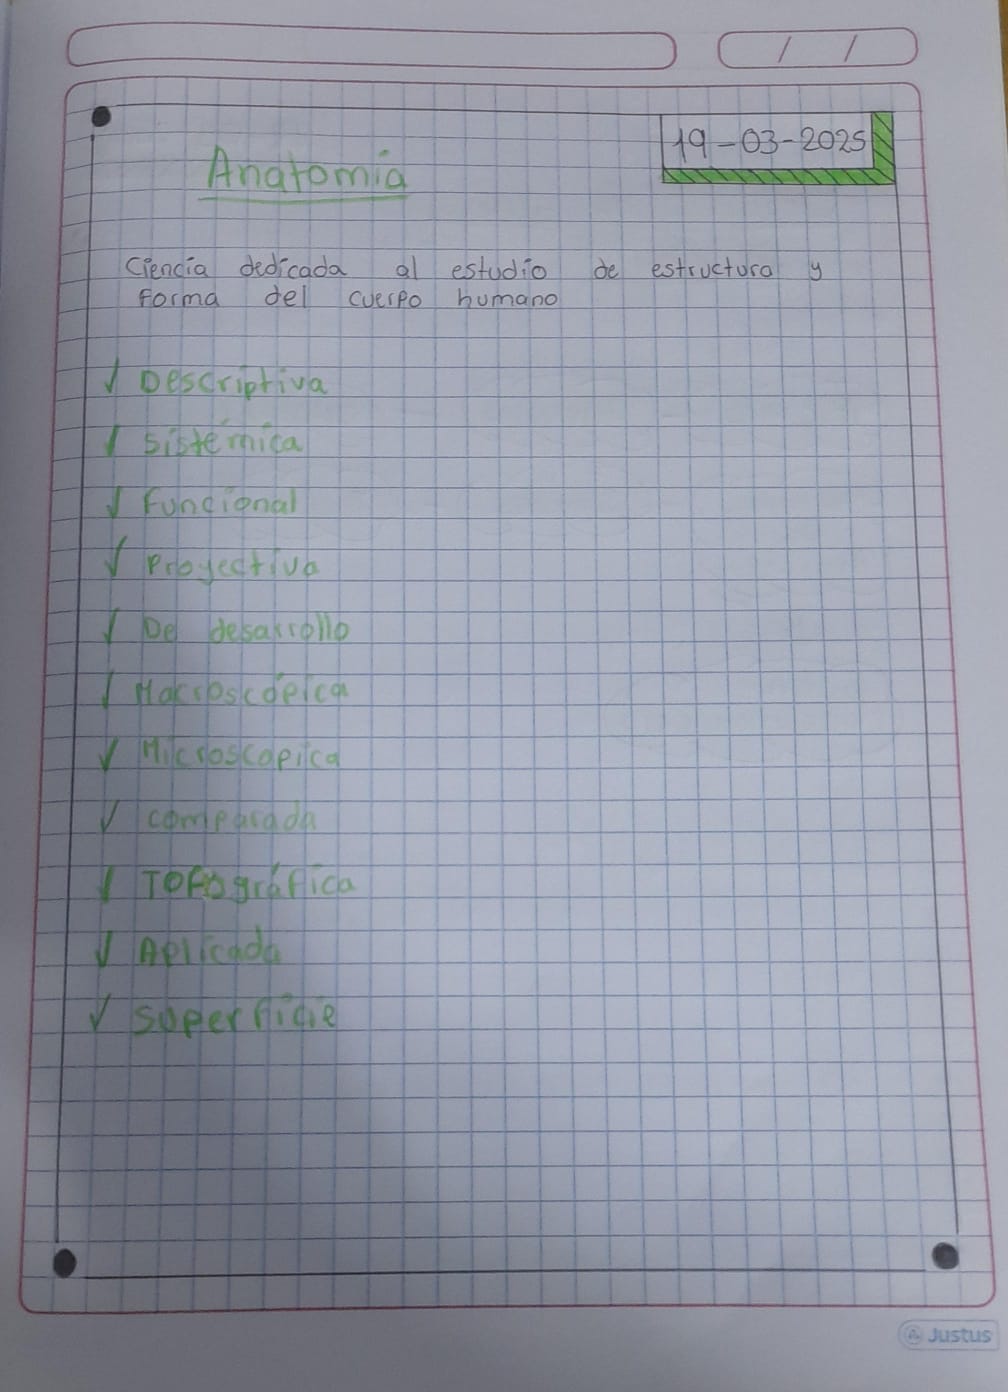 / /
19-03-2025
Anatomía
Ciencia dedicada al estudio de estructura y
Forma del cuerpo humano
✓ Descriptiva
✓ Sistémica
✓ Funcional
✓ Proyectiva
✓ De desarrollo
✓ Macroscópica
✓ Microscopica
✓ comparada
✓ Topográfica
✓ Aplicada
✓ Superficie
Justus